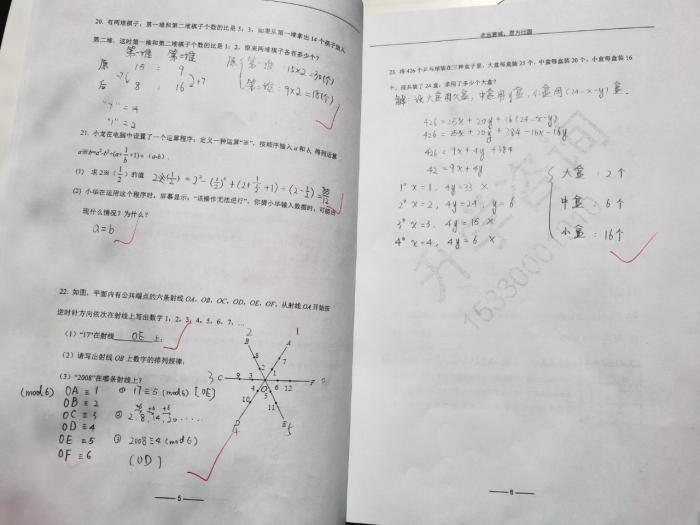 20. 有两堆棋子，第一堆和第二堆棋子个数的比是 5：3，如果从第一堆拿出 14 个棋子放入
第二堆，这时第一堆和第二堆棋子个数的比是 1：2，原来两堆棋子各有多少个？
第一堆 第二堆
原 15 : 9
后 8 : 16
-7 +7
"7" = 14
"1" = 2
原 第一堆：15×2=30(个)
第二堆：9×2=18(个)
21. 小龙在电脑中设置了一个运算程序：定义一种运算"※"，按顺序输入 a 和 b，得到运算
a※b=a²-b²+(a+1/b+1)÷(a-b).
(1) 求 2※(1/2) 的值
(2) 小华在运用这个程序时，屏幕显示："该操作无法进行"，你猜小华输入数据时，可能出
现什么情况？为什么？
a=b
22. 如图，平面内有公共端点的六条射线 OA，OB，OC，OD，OE，OF，从射线 OA 开始按
逆时针方向依次在射线上写出数字 1，2，3，4，5，6，7，…
(1) "17"在射线 OE 上；
(2) 请写出射线 OB 上数字的排列规律；
(3) "2008"在哪条射线上？
(mod 6) OA ≡ 1
OB ≡ 2
OC ≡ 3
OD ≡ 4
OE ≡ 5
OF ≡ 6
① 17≡5 (mod 6) [OE]
② 2. 8. 14. 20 ……
+6 +6 +6
③ 2008≡4 (mod 6)
(OD)
5
走近賽城，意力注園
23. 将 426 个乒乓球装在三种盒子里，大盒每盒装 25 个，中盒每盒装 20 个，小盒每盒装 16
个，现共装了 24 盒，求用了多少个大盒？
解：设大盒用x盒，中盒用y盒，小盒用(24-x-y)盒.
426=25x+20y+16(24-x-y)
426=25x+20y+384-16x-16y
426=9x+4y+384
42=9x+4y
1° x=1, 4y=33 ×
2° x=2, 4y=24, y=6
3° x=3, 4y=15 ×
4° x=4, 4y=6 ×
大盒：2个
中盒：6个
小盒：16个
升学咨询
6